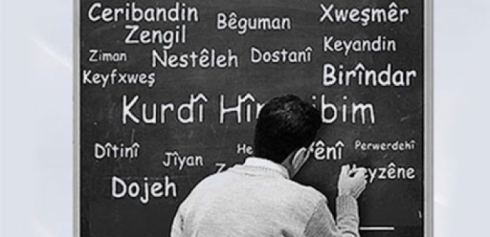 Ceribandin Bêguman Xweşmêr
Zengil
Ziman Nestêleh Dostanî Keyandin
Keyfxweş Birîndar
Kurdî ibim
Dîtinî Jîyan Perwerdehî
Dojeh